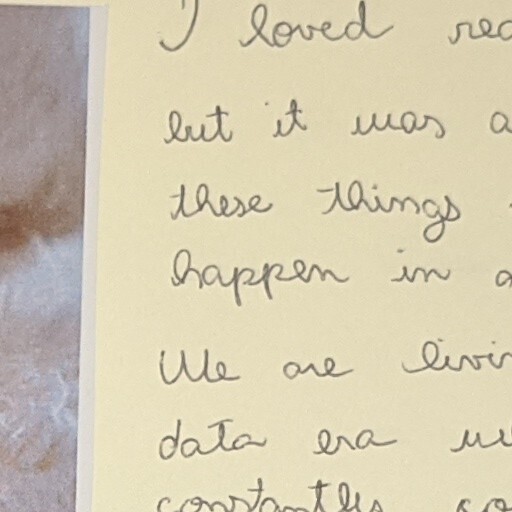 I loved rea
but it was a
these things
happen in a
We are livin
data era w
constantly co